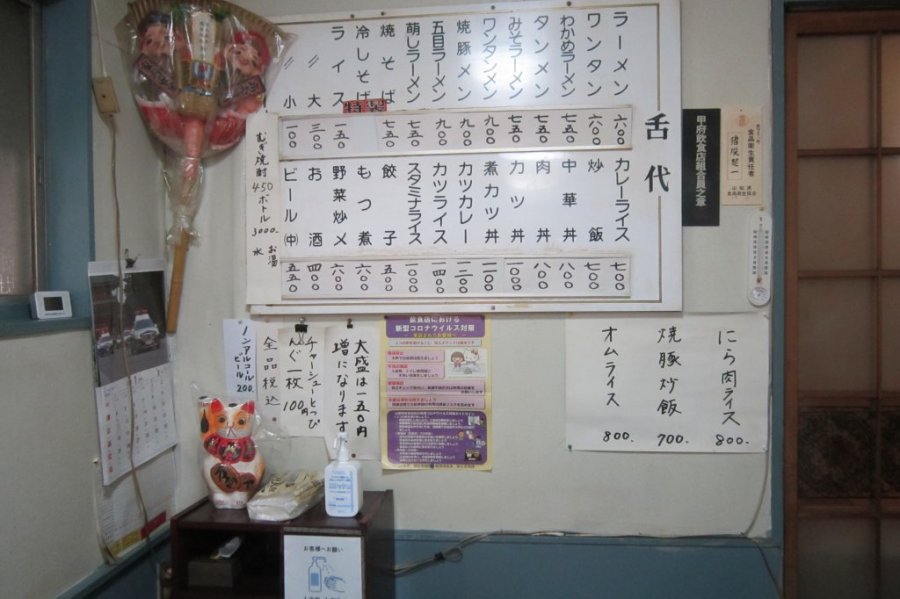 舌代
ラーメン 六〇〇
ワンタン 六〇〇
わかめラーメン 七五〇
タンメン 七五〇
みそラーメン 七五〇
ワンタンメン 九〇〇
焼豚メン 九〇〇
五目ラーメン 九〇〇
萌しラーメン 七五〇
焼そば 七五〇
特製
冷しそば
ライス 一五〇
〃 大 三〇〇
〃 小 一〇〇
カレーライス 七〇〇
炒飯 七〇〇
中華丼 八〇〇
肉丼 八〇〇
カツ丼 一〇〇〇
煮カツ丼 一一〇〇
カツカレー 一二〇〇
カツライス 一四〇〇
スタミナライス 一〇〇〇
餃子 五〇〇
もつ煮 六〇〇
野菜炒メ 六〇〇
お酒 四〇〇
ビール(中) 五五〇
むぎ焼酎 450
ボトル 3000
お湯
水
甲府飲食店組合員之章
食品衛生責任者
にら肉ライス 800.
焼豚炒飯 700.
オムライス 800.
飲食店における
新型コロナウイルス対策
大盛は一五〇円
増になります
チャーシュートッピ
んぐ一枚 100円
全品税込
ノンアルコール
ビール 200
お客様へお願い